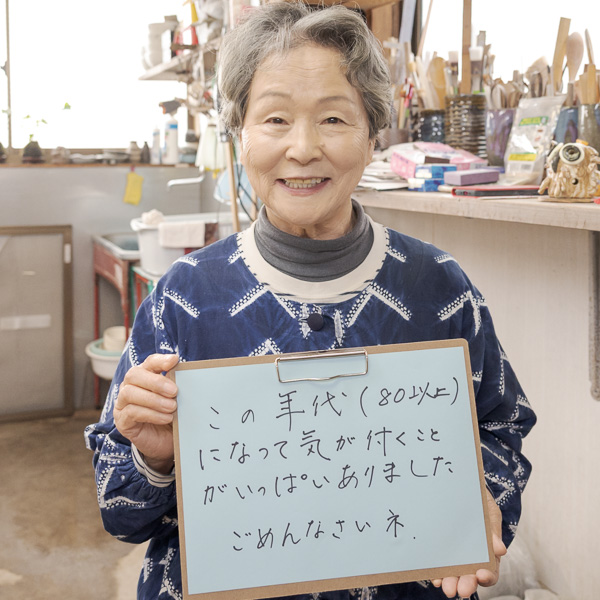 この年代(80以上)
になって気が付くこと
がいっぱいありました
ごめんなさいネ.